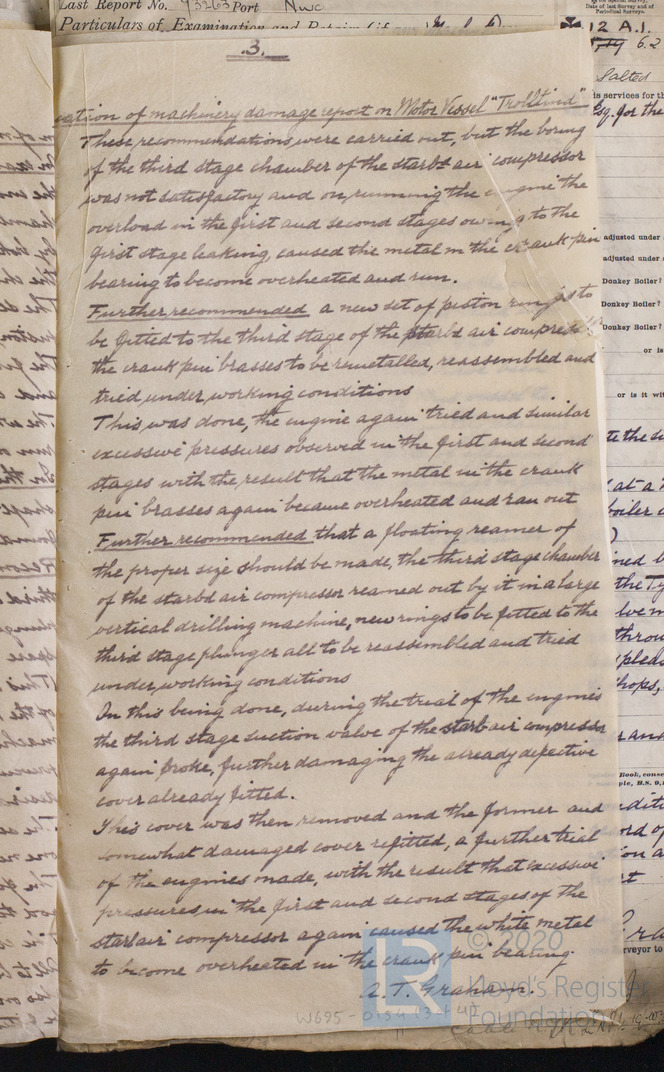 Last Report No. 93263 Port Nwc
Particulars of Examination and Repairs (if any)
.3.
ation of machinery damage report on Motor Vessel "Trolltind"
These recommendations were carried out, but the boring
of the third stage chamber of the starbd air compressor
was not satisfactory and on running the engine the
overload in the first and second stages owing to the
first stage leaking, caused the metal in the crank pin
bearing to become overheated and run.
Further recommended a new set of piston rings to
be fitted to the third stage of the starbd air compressor
the crank pin brasses to be remetalled, reassembled and
tried under working conditions
This was done, the engine again tried and similar
excessive pressures observed in the first and second
stages with the result that the metal in the crank
pin brasses again became overheated and ran out
Further recommended that a floating reamer of
the proper size should be made, the third stage chamber
of the starbd air compressor reamed out by it in a large
vertical drilling machine, new rings to be fitted to the
third stage plunger all to be reassembled and tried
under working conditions
On this being done, during the trial of the engines
the third stage suction valve of the starb air compressor
again broke, further damaging the already defective
cover already fitted.
This cover was then removed and the former and
somewhat damaged cover refitted, a further trial
of the engines made, with the result that excessive
pressures in the first and second stages of the
starb air compressor again caused the white metal
to become overheated in the crank pin bearing.
A. T. Graham.
© 2020
Lloyd's Register
Foundation
W695-0134
12 A.1.
6.2
Salted
is services for th
Esq. for the
adjusted under
adjusted under
Donkey Boiler?
Donkey Boiler?
Donkey Boiler?
or is
or is it wit